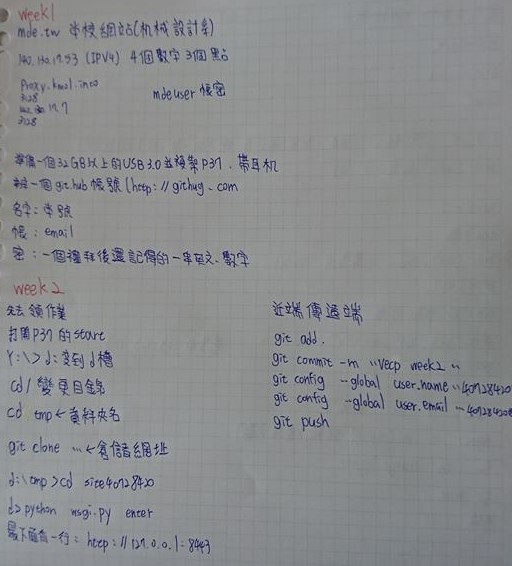 week1
mde.tw 本校網站(机械設計系)
140.130.17.53 (IPV4) 4個數字 3個點
Proxy.kmol.info
3128
17.7
3128
mdeuser 帳密
準備一個32GB以上的USB 3.0 並預架 P37、帶耳机
一個 git.hub 帳號 (http://githug.com
名字:本號
帳:email
密:一個禮拜後還記得的一串英文.數字
week2
先去領作業
打開P37的start
Y:\> d: 変到d槽
cd/ 變更目錄
cd tmp ← 資料夾名
git clone … ← 倉儲網址
d:\tmp > cd site40728420
d> python wsgi.py enter
最下面有一行: http://127.0.0.1:8443
近端傳遠端
git add .
git commit -m "vecp week2"
git config -global user.name "40728420
git config -global user.email
git push